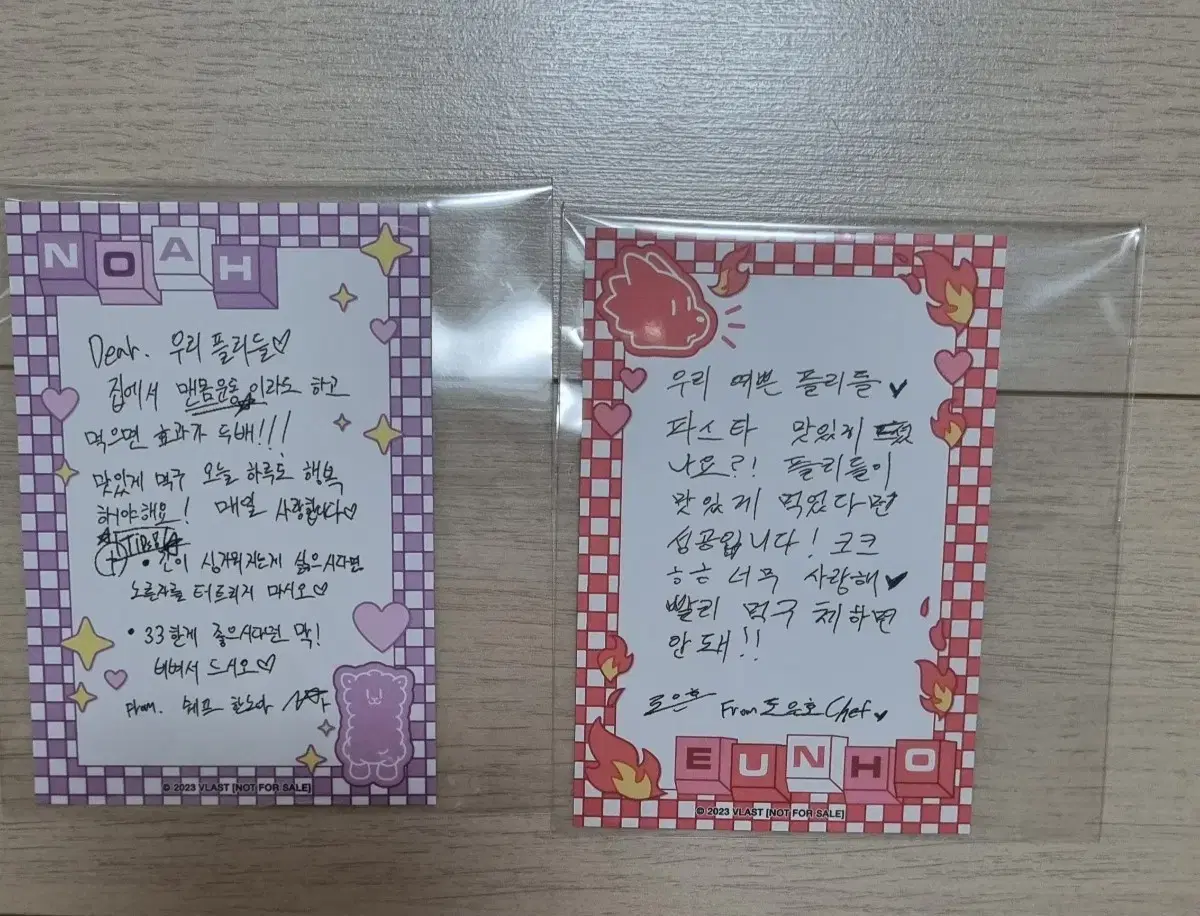 NOAH
Dear. 우리 플리들♡
집에서 맨몸운동이라도 하고
먹으면 효과가 두배!!!
맛있게 먹구 오늘 하루도 행복
해야해요! 매일 사랑합니다♡
+ TIP
• 간이 싱거워지는게 싫으시다면
노른자를 터트리지 마시오♡
• 33한게 좋으시다면 팍!
비벼서 드시오♡
From. 쉐프 한노아
© 2023 VLAST [NOT FOR SALE]
우리 예쁜 플리들
파스타 맛있게
나요?! 플리들이
맛있게 먹었다면
성공입니다! 크크
ㅎㅎ 너무 사랑해
빨리 먹구 체하면
안돼!!
도은호 From 도은호 Chef
EUNHO
© 2023 VLAST [NOT FOR SALE]